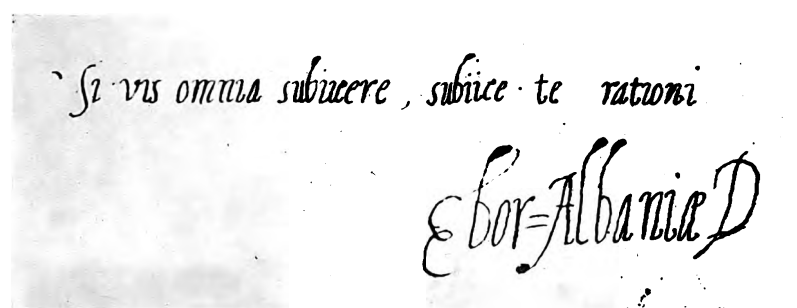 Si vis omnia subiicere, subiice te rationi
Ebor=Albaniæ D